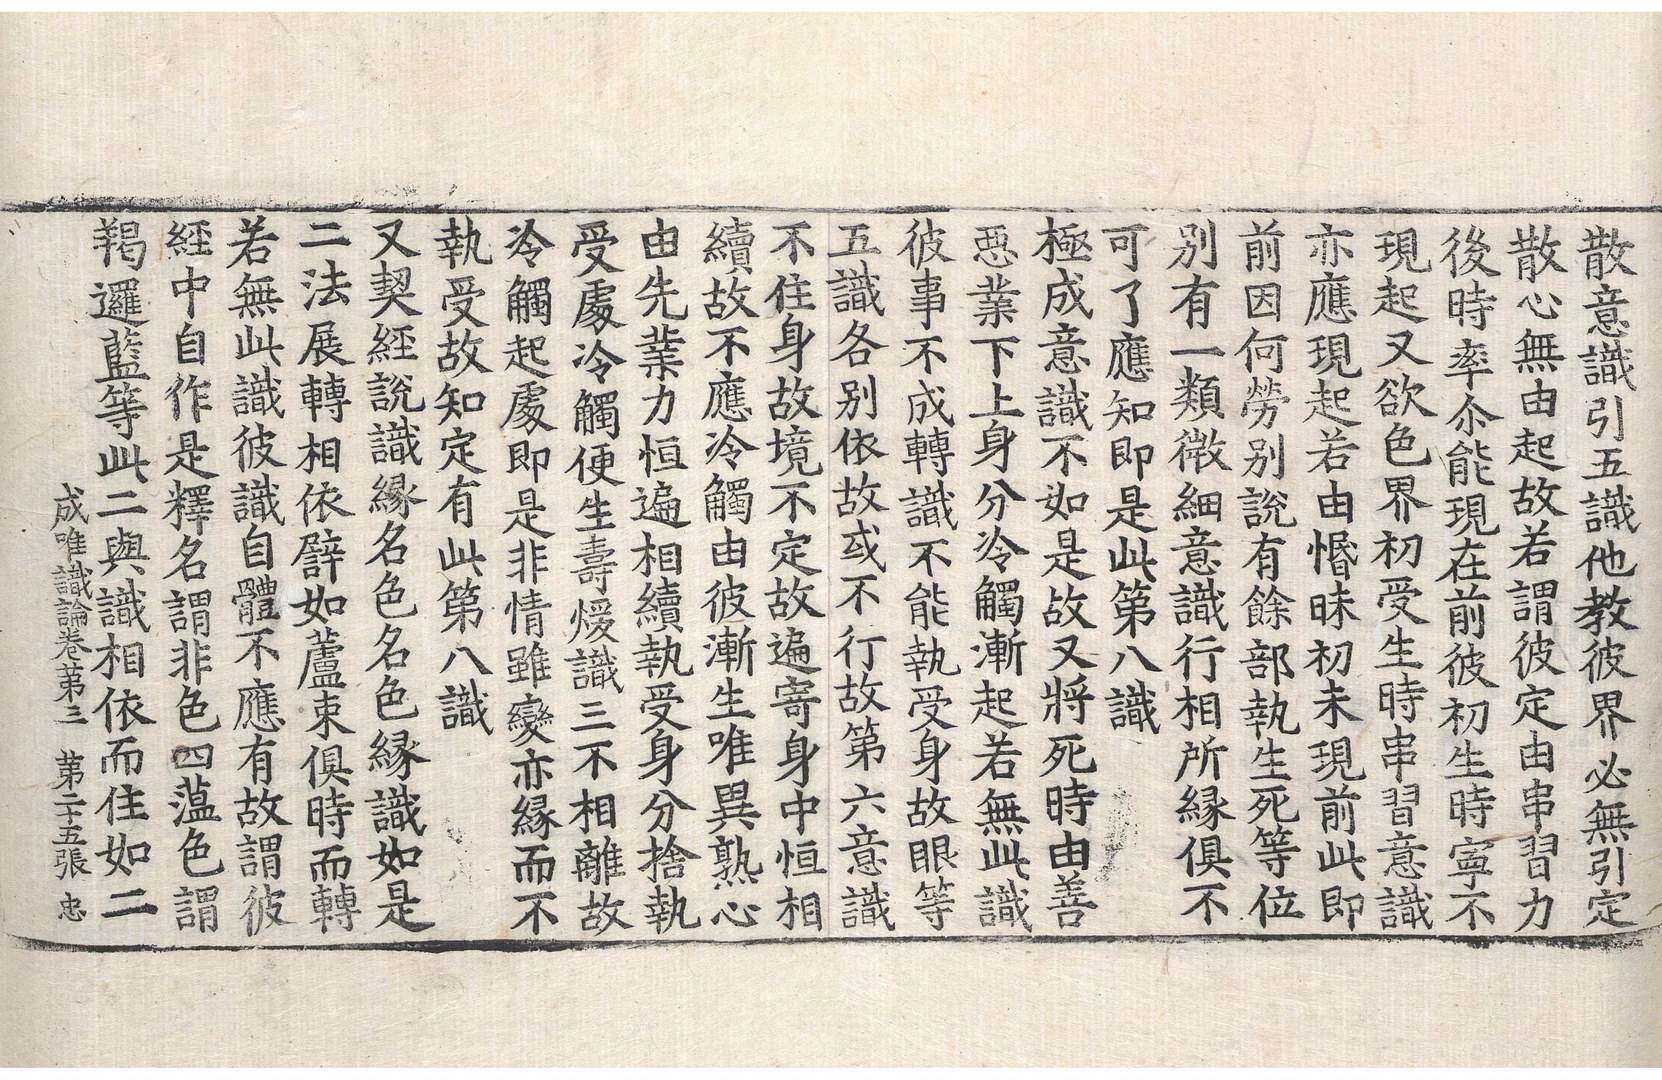 散意識引五識他教彼界必無引定
散心無由起故若謂彼定由串習力
後時率尒能現在前彼初生時寧不
現起又欲色界初受生時串習意識
亦應現起若由惛昧初未現前此即
前因何勞別說有餘部執生死等位
別有一類微細意識行相所緣俱不
可了應知即是此第八識
極成意識不如是故又將死時由善
惡業下上身分冷觸漸起若無此識
彼事不成轉識不能執受身故眼等
五識各別依故或不行故第六意識
不住身故境不定故遍寄身中恒相
續故不應冷觸由彼漸生唯異熟心
由先業力恒遍相續執受身分捨執
受處冷觸便生壽煖識三不相離故
冷觸起處即是非情雖變亦緣而不
執受故知定有此第八識
又契經說識緣名色名色緣識如是
二法展轉相依譬如蘆束俱時而轉
若無此識彼識自體不應有故謂彼
經中自作是釋名謂非色四蕰色謂
羯邏藍等此二與識相依而住如二
成唯識論卷苐三 苐二十五張 忠